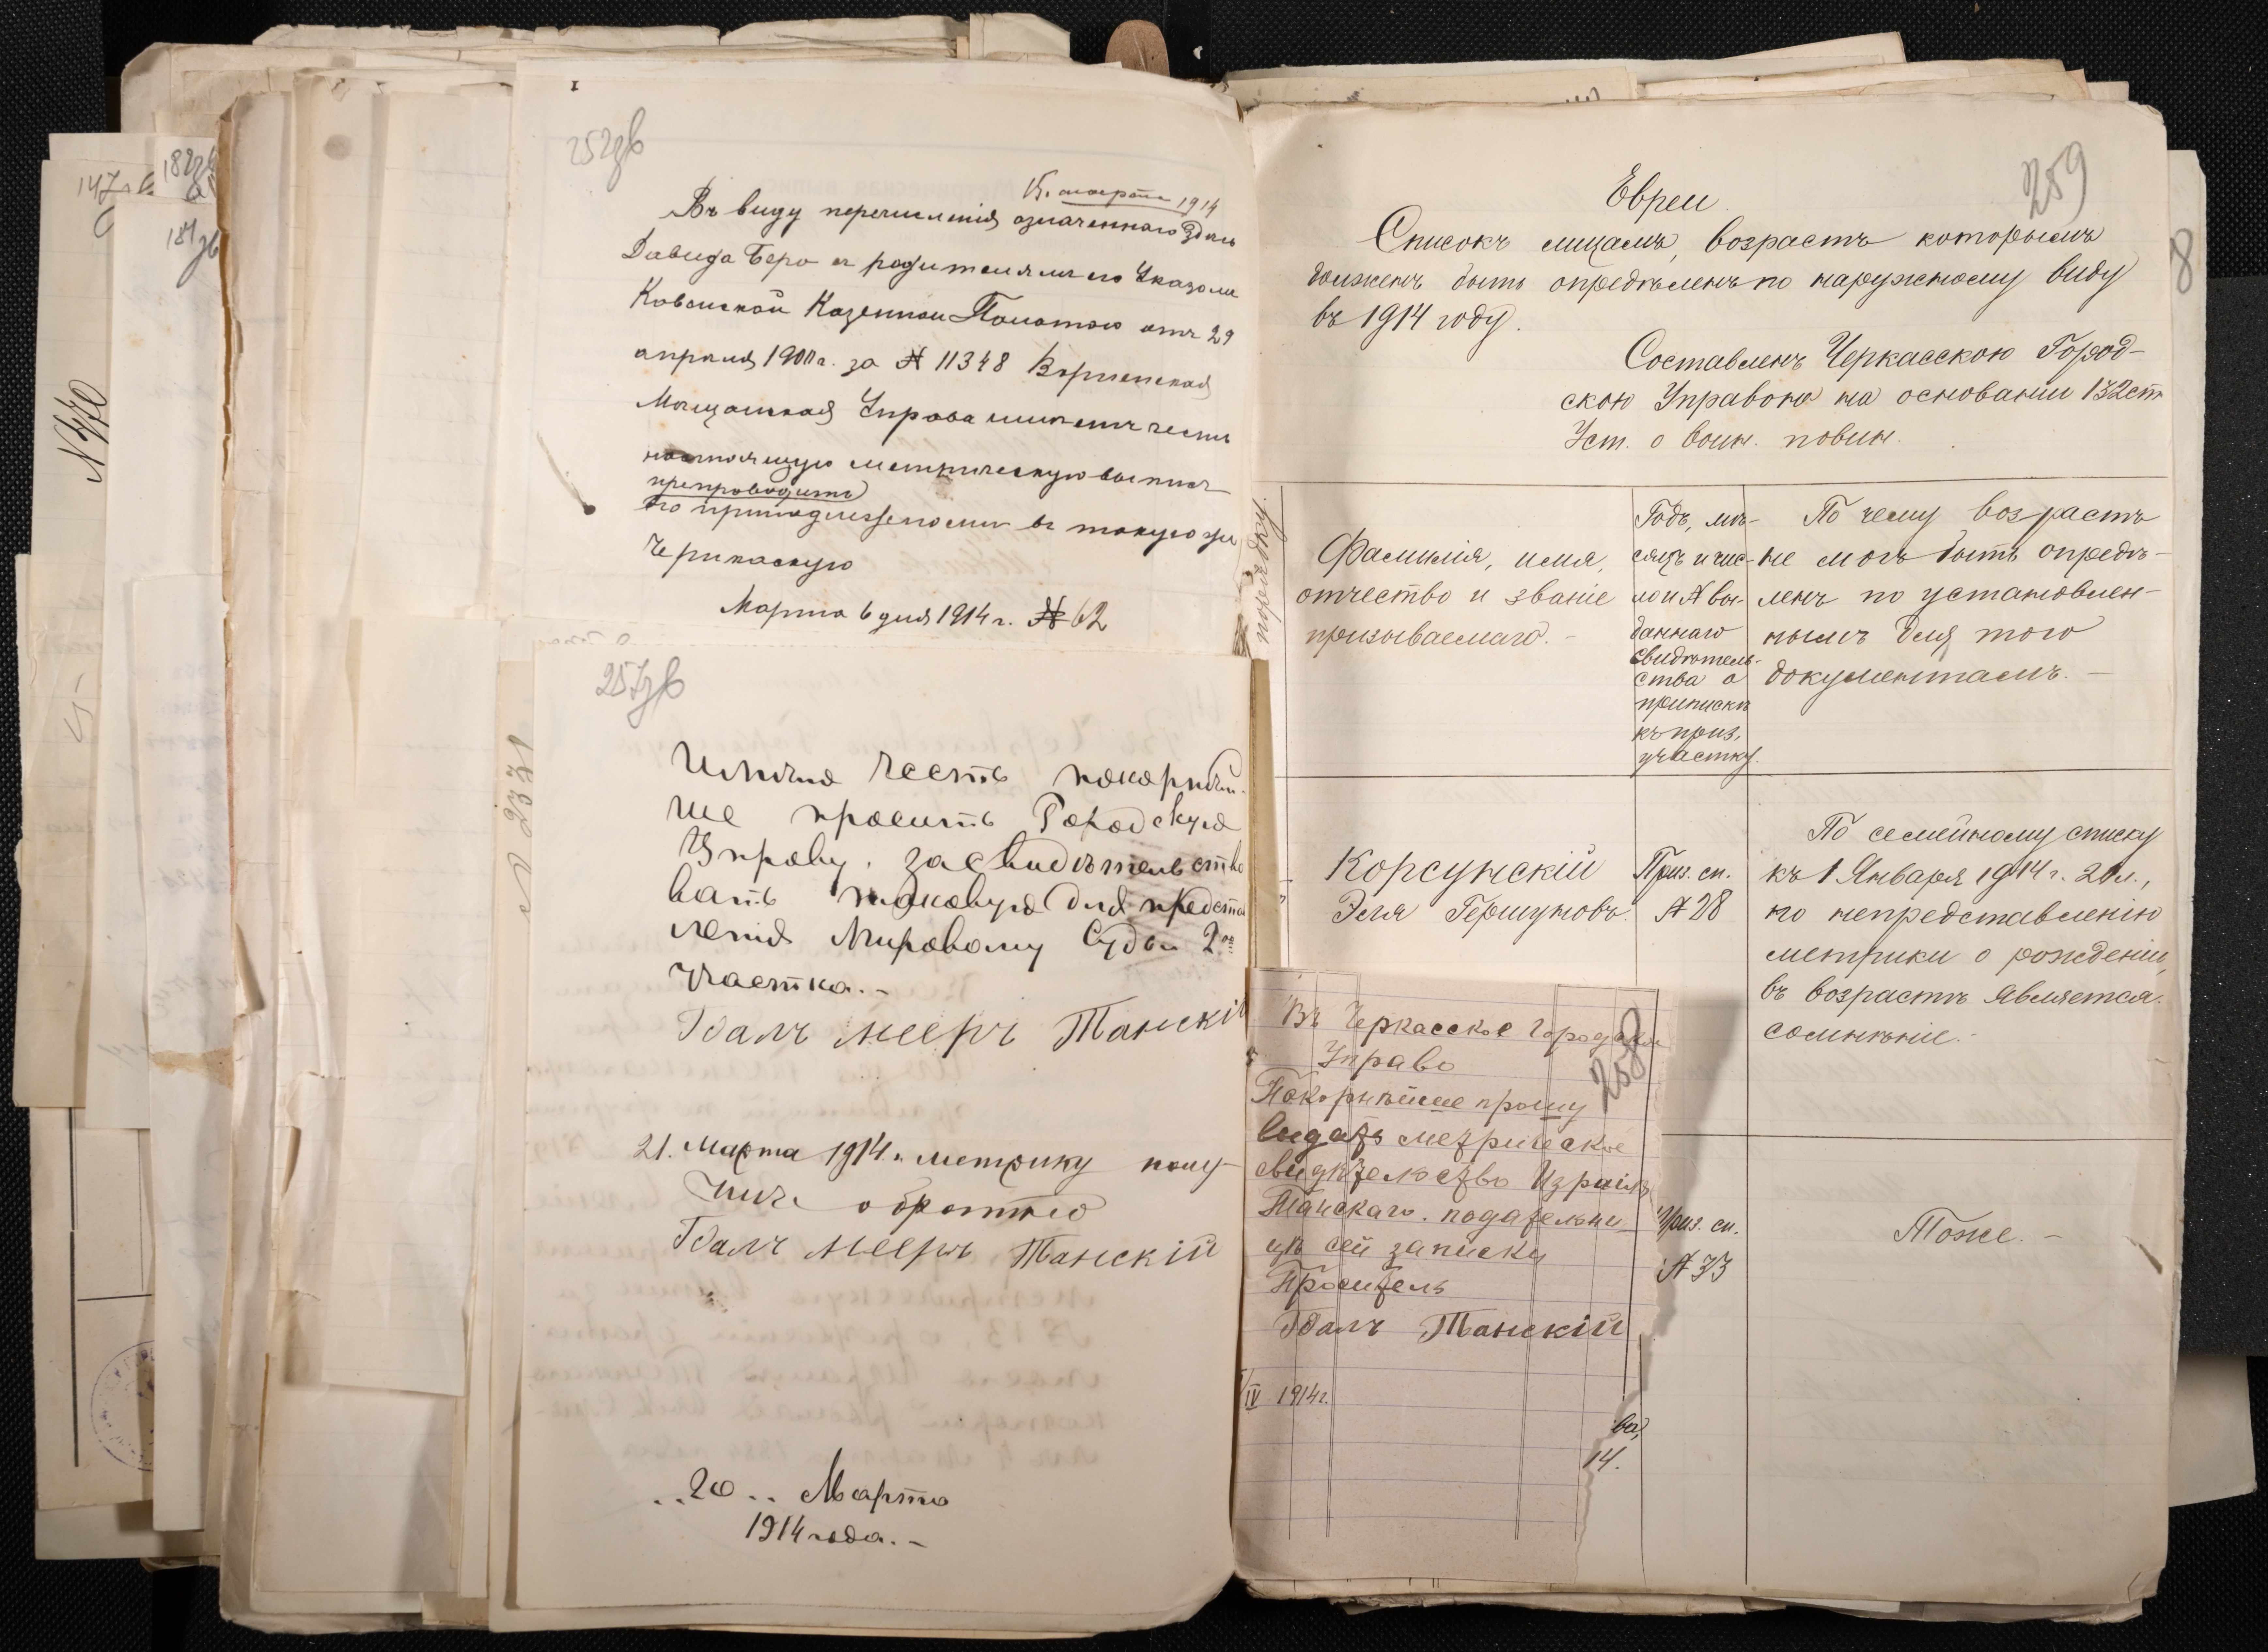 147
182
184 зв
N 770
N 2331
252 зв
15. марта 1914
Въ виду перечисленія означеннаго
Давида Беро съ родителями его Указомъ
Ковенской Казенной Палатою отъ 29
апрѣля 1900 г. за № 11348
Мѣщанская Управа имѣетъ честь
настоящую метрическую выпись
препроводить
по принадлежности въ такую же
Черкаскую
Марта 6 дня 1914 г. № 62
257 зв
Имѣю честь покорнѣй-
ше просить Городскую
Управу засвидѣтельство
вать таковую для предста
ленія Мировому Судьи 2го
Участка.-
Гдалъ Мееръ Танскій
21. Марта 1914 г. метрику полу-
чилъ обратно
Гдалъ Мееръ Танскій
..20.. Марта
1914 года.-
259
8
Евреи.
Списокъ лицамъ, возрастъ которымъ
долженъ быть опредѣленъ по наружному виду
въ 1914 году.
Составленъ Черкасскою Город-
скою Управою на основаніи 132 ст
Уст. о воин. повин.
Фамилія, имя,
отчество и званіе
призываемаго.-
Годъ, мѣ-
сяцъ и чис-
ло и № вы-
даннаго
свидѣтель-
ства о
припискѣ
къ приз.
участку.
По чему возрастъ
не могъ быть опредѣ-
ленъ по установлен-
нымъ для того
документамъ.-
Корсунскій
Эля Гершуновъ.
Приз. сп.
№ 28
По семейному списку
къ 1 Января 1914 г. 20 л.,
по непредставленію
метрики о рожденіи,
въ возрастѣ является
сомнѣніе.-
258
Въ Черкасское Городское
Управо
Покорнѣйше прошу
видать метрическое
свидѣтельство Израиль
Танскаго. подательни-
цѣ сей записки
Проситель
Гдалъ Танскій
IV 1914 г.
Приз. сп.
№ 33
Тоже.-
ва,
14.